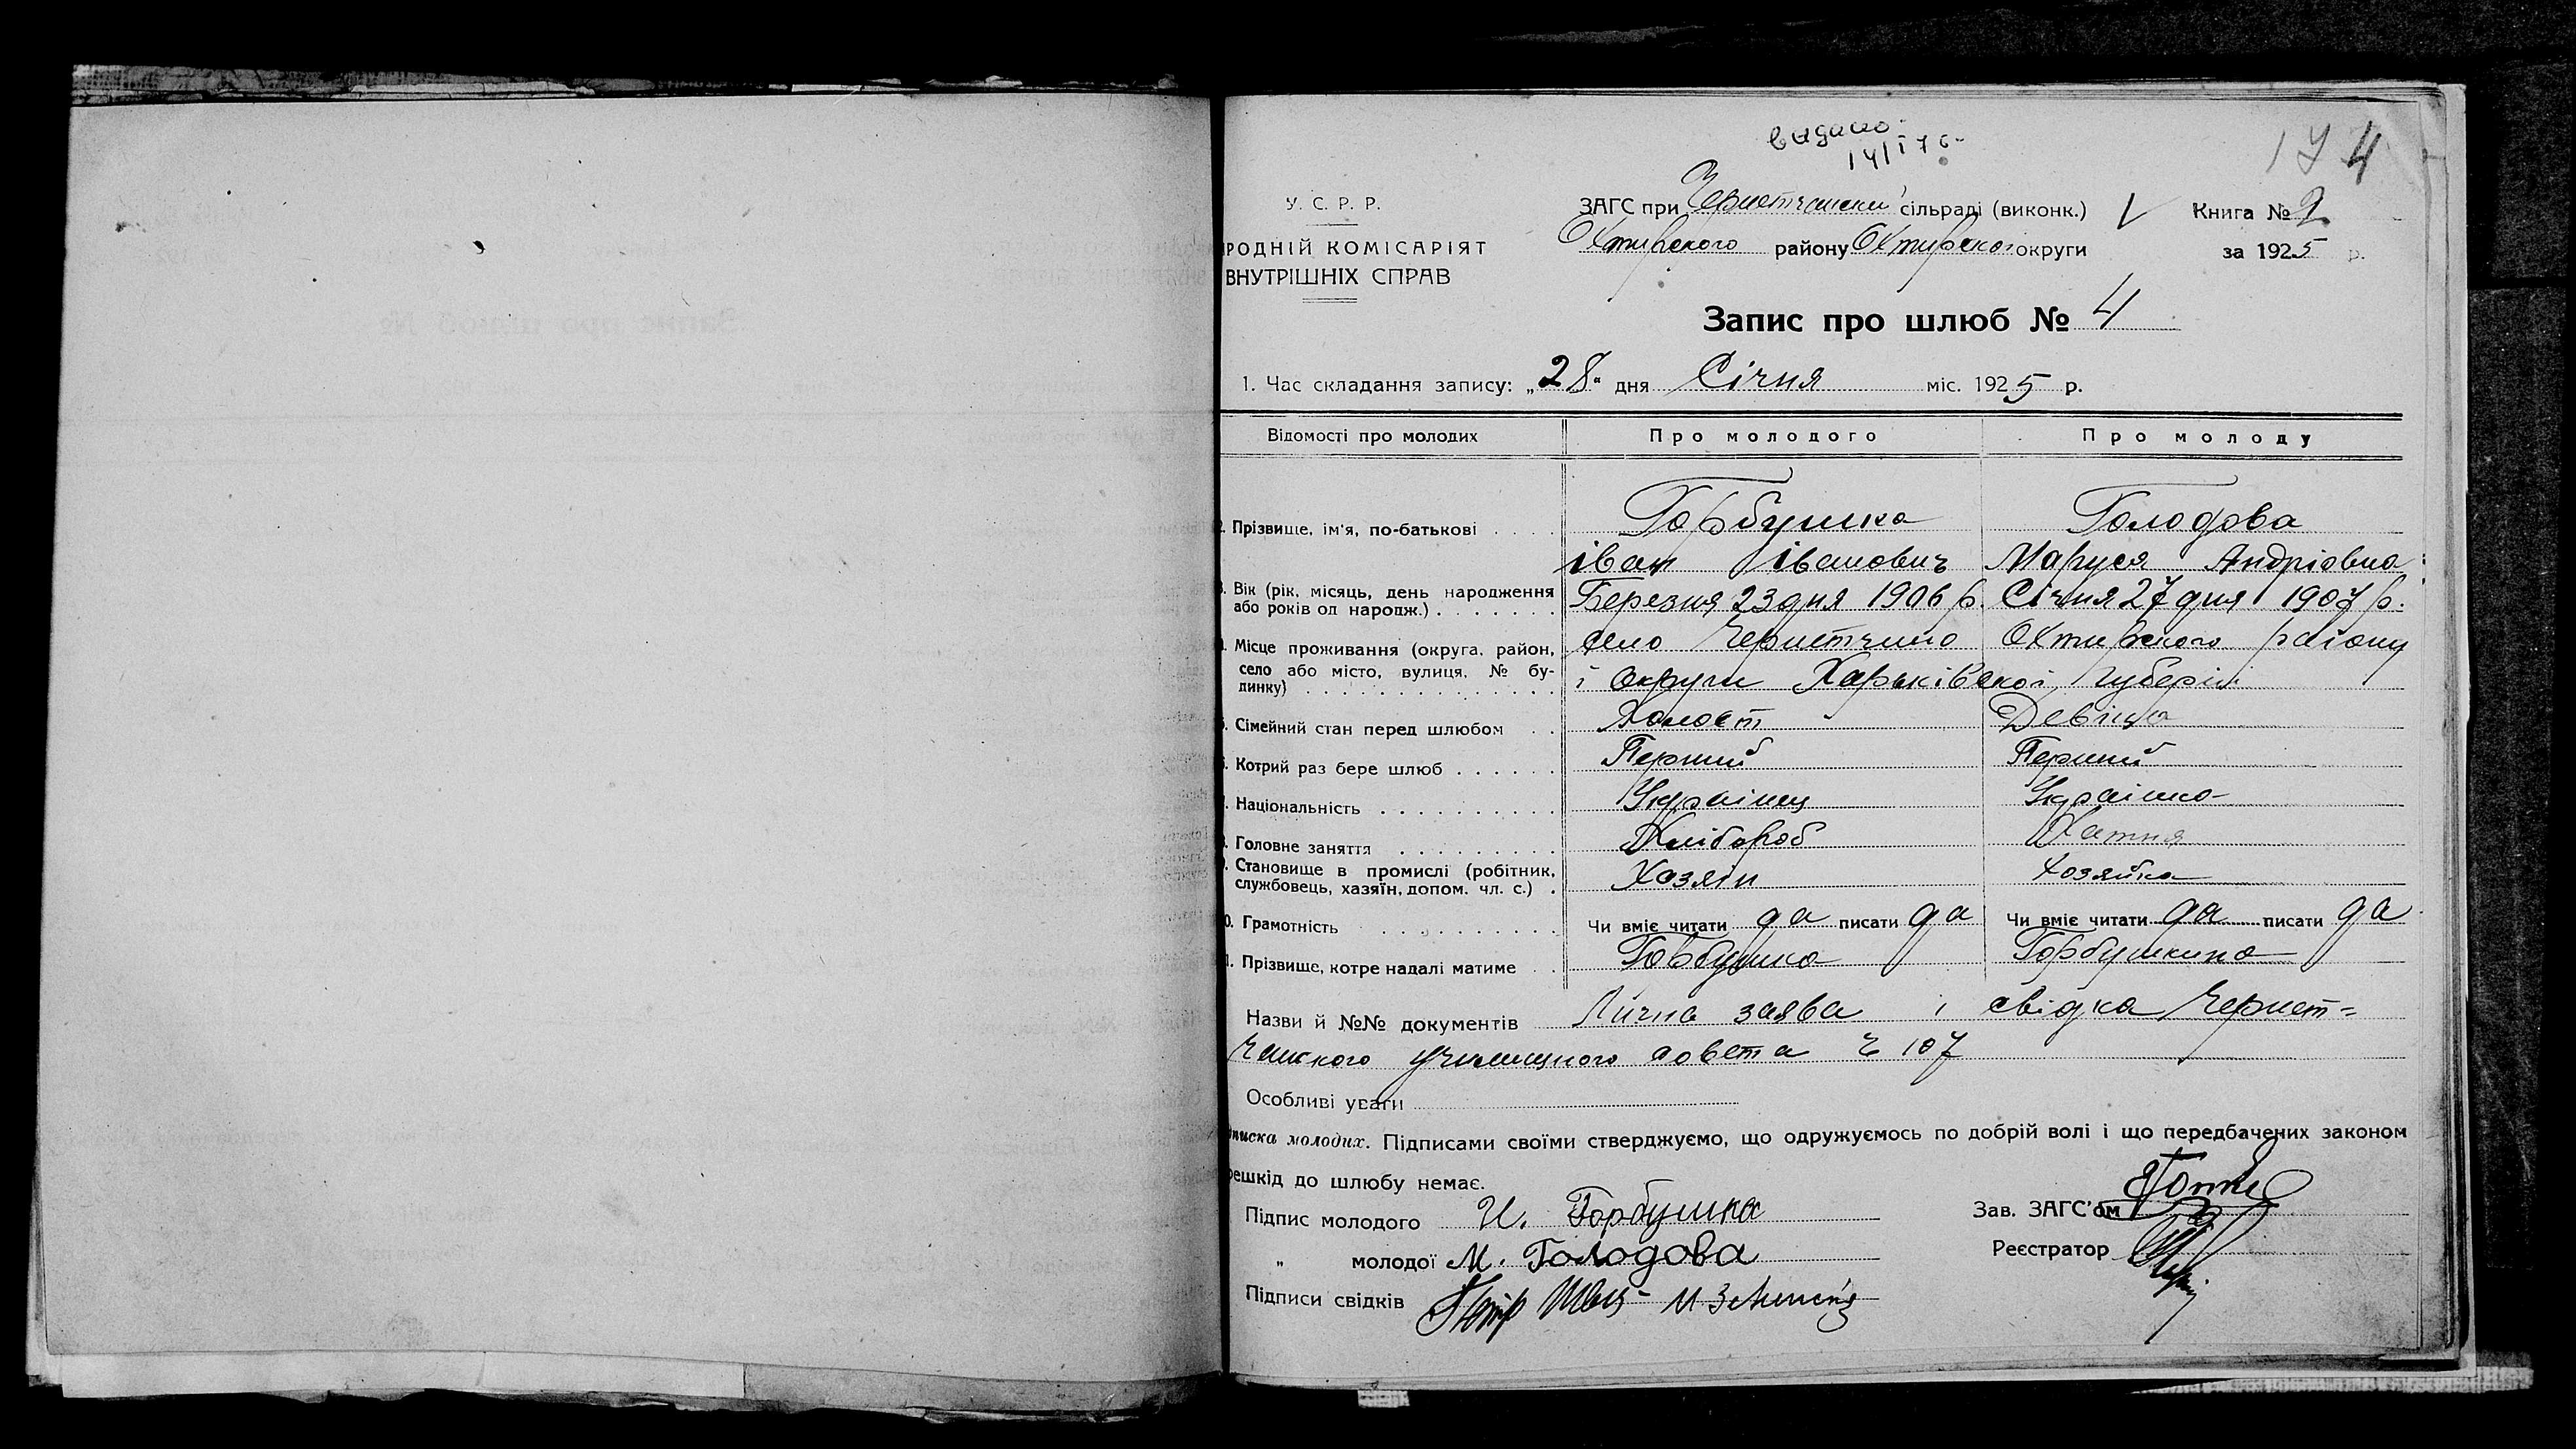 видано
14/I 76
174
У. С. Р. Р.
РОДНІЙ КОМІСАРІЯТ
ВНУТРІШНІХ СПРАВ
ЗАГС при сільраді (виконк.) V
Охтирского району Охтирскої округи
Книга № 2
за 1925 р.
Запис про шлюб № 4
1. Час складання запису: „28“ дня Січня міс. 1925 р.
Відомості про молодих Про молодого Про молоду
2. Прізвище, ім'я, по-батькові . . . . Горбушка Голодова
іван івановичъ Маруся Андріовна
3. Вік (рік, місяць, день народження або років од народж.) . . . . . . . Березня 23 дня 1906 р. Січня 27 дня 1907 р.
4. Місце проживання (округа, район, село або місто, вулиця, № будинку) . . . . . . . . . . . . . . село Чернетчино Охтирского району
і округи Харьківскої губерії
5. Сімейний стан перед шлюбом . . Холост Девіца
6. Котрий раз бере шлюб . . . . . . Перший Перший
7. Національність . . . . . . . . . . Українец Українка
8. Головне заняття . . . . . . . . . Хлібороб Хатня
9. Становище в промислі (робітник, службовець, хазяїн, допом. чл. с.) . Хазяін Хозяйка
0. Грамотність . . . . . . . . . . Чи вміє читати да писати да Чи вміє читати да писати да
1. Прізвище, котре надалі матиме . . Горбушка Горбушкина
Назви й №№ документів Лична заява і свідка Чернет=
чанского училищного совета ч 107
Особливі уваги
писка молодих. Підписами своїми стверджуємо, що одружуємось по добрій волі і що передбачених законом
решкід до шлюбу немає.
Підпис молодого И. Горбушка
Зав. ЗАГС'ом
„ молодої М. Голодова
Реєстратор
Підписи свідків Швец